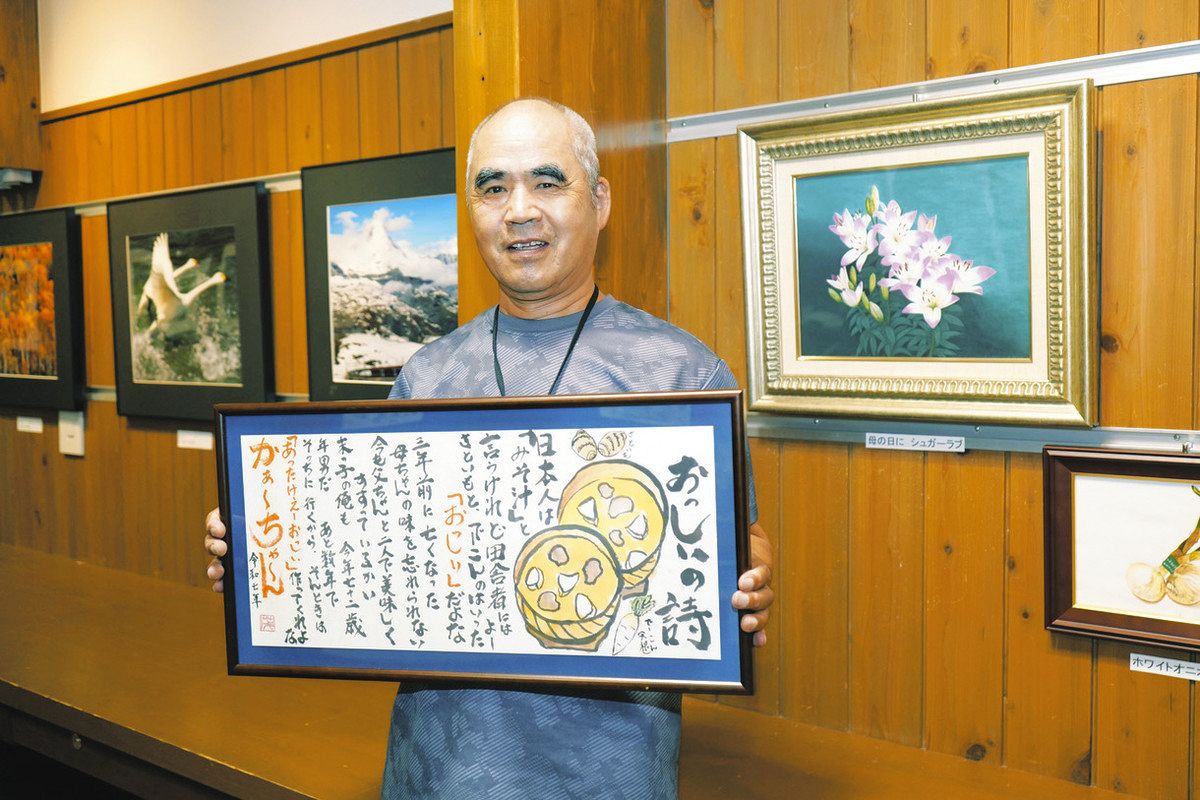 おっしいの詩
日本人は
「みそ汁」と
言うけれど田舎者には よー
さといもと、でこんのはいった
「おじい」だよな
三年前に 亡くなった
母ちゃんの味を忘れられない
今も父ちゃんと二人で美味しく
すすっているかい
末っ子の俺も 今年七十二歳
年男だ あと数年で
そっちに行くから、そんときは
「あったけえーおっしい」作ってくれよな
かぁ〜ちゃ〜ん
令和七年
母の日に シュガーラブ
ホワイトオニオ